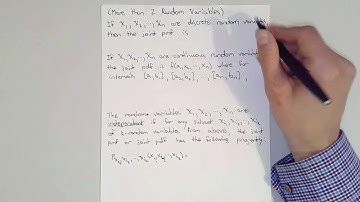 (More than 2 Random Variables)
If X₁, X₂, ..., Xₙ are discrete random variables
then the joint pmf is
If X₁, X₂, ..., Xₙ are continuous random variables
the joint pdf is f(x₁, x₂, ..., xₙ) where for
intervals [a₁,b₁], [a₂,b₂], ..., [aₙ,bₙ],
The random variables X₁, X₂, ..., Xₙ are
independent if for any subset
of random variables from above, the joint
pmf or joint pdf has the following property.